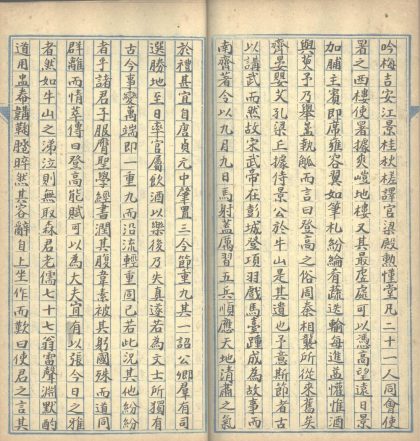 吟梅吉安江景桂秋槎譯官梁殿懃僅堂凡二十一人同會使
署之西樓使署據爽塏地樓又其最處可以憑高望遠日景
加脯主賓即席雍容翼如筆札紛綸肴蔬迭輸每進益懽惟酒
與萸予乃舉盞執觚而言曰登高之俗周秦相襲所從來舊矣
齊晏嬰艾孔梁丘據侍景公於牛山是其遺也予意斯節者古
以講武而然故宋武帝在彭城登項羽戲馬臺踵成為故事而
南齊著令以九月九日馬射蓋厲習五兵順應天地清肅之氣
於禮甚宜自唐貞元中肇置三令節重九其一詔公卿羣有司
選勝地至日率官屬飲酒以樂後乃失真遂若為文士所獨有
古今事變萬端即一重九而沿流輕重固已若此況其他紛紛
者乎諸君子服膺聖學經書潤其腹韋素被其躬國殊而道同
群離而情萃傳曰登高能賦可以為大夫宜有以張今日之雅
者然如牛山之涕泣則無取森君老儒七十七翁雷聲淵默酌
道用盅韝鞠睟然其容辭自上坐作而歎曰使君之言其